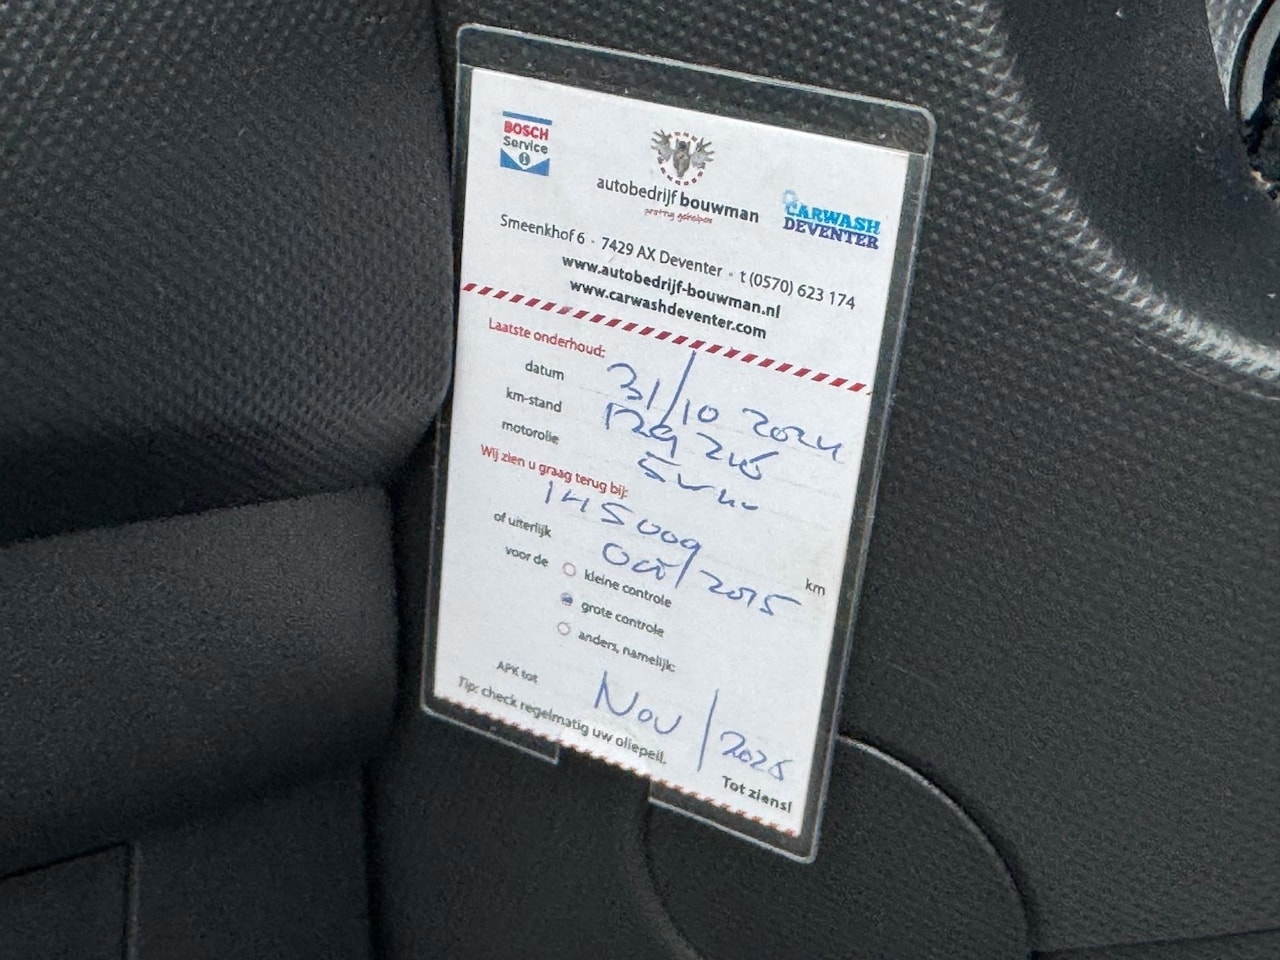 BOSCH
Service
autobedrijf bouwman
prettig geholpen
CARWASH
DEVENTER
Smeenkhof 6 · 7429 AX Deventer · t (0570) 623 174
www.autobedrijf-bouwman.nl
www.carwashdeventer.com
Laatste onderhoud:
datum 31/10 2024
km-stand
motorolie
Wij zien u graag terug bij:
145000 km
of uiterlijk
voor de kleine controle
grote controle
anders, namelijk:
APK tot Nov / 2025
Tip: check regelmatig uw oliepeil.
Tot ziens!